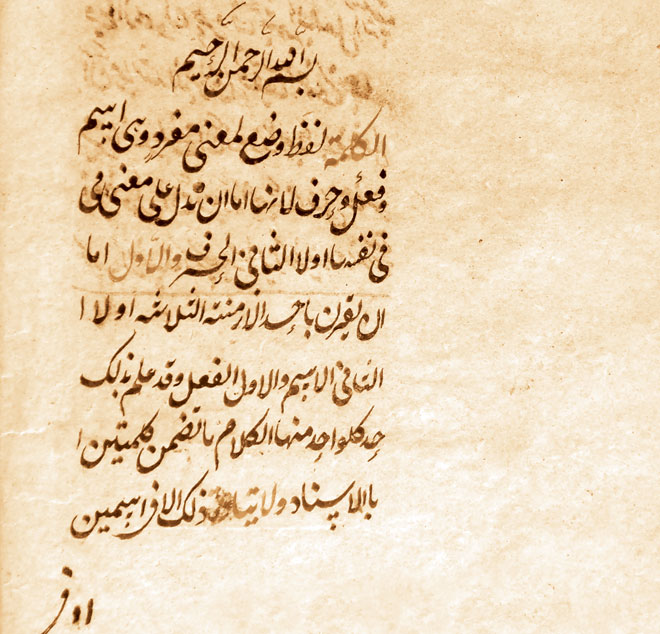 بسم الله الرحمن الرحيم
الكلمة لفظ وضع لمعنى مفرد وهى اسم
وفعل وحرف لانها اما ان تدل على معنى فى
فى نفسها اولا الثانى الحرف والاول اما
ان يقترن باحد الازمنته الثلاثه اولا ا
الثانى الاسم والاول الفعل وقد علم بذلك
حد كلواحد منها الكلام ما تضمن كلمتين ا
بالاسناد ولا يتاتى ذلك الا فى اسمين
اوفى